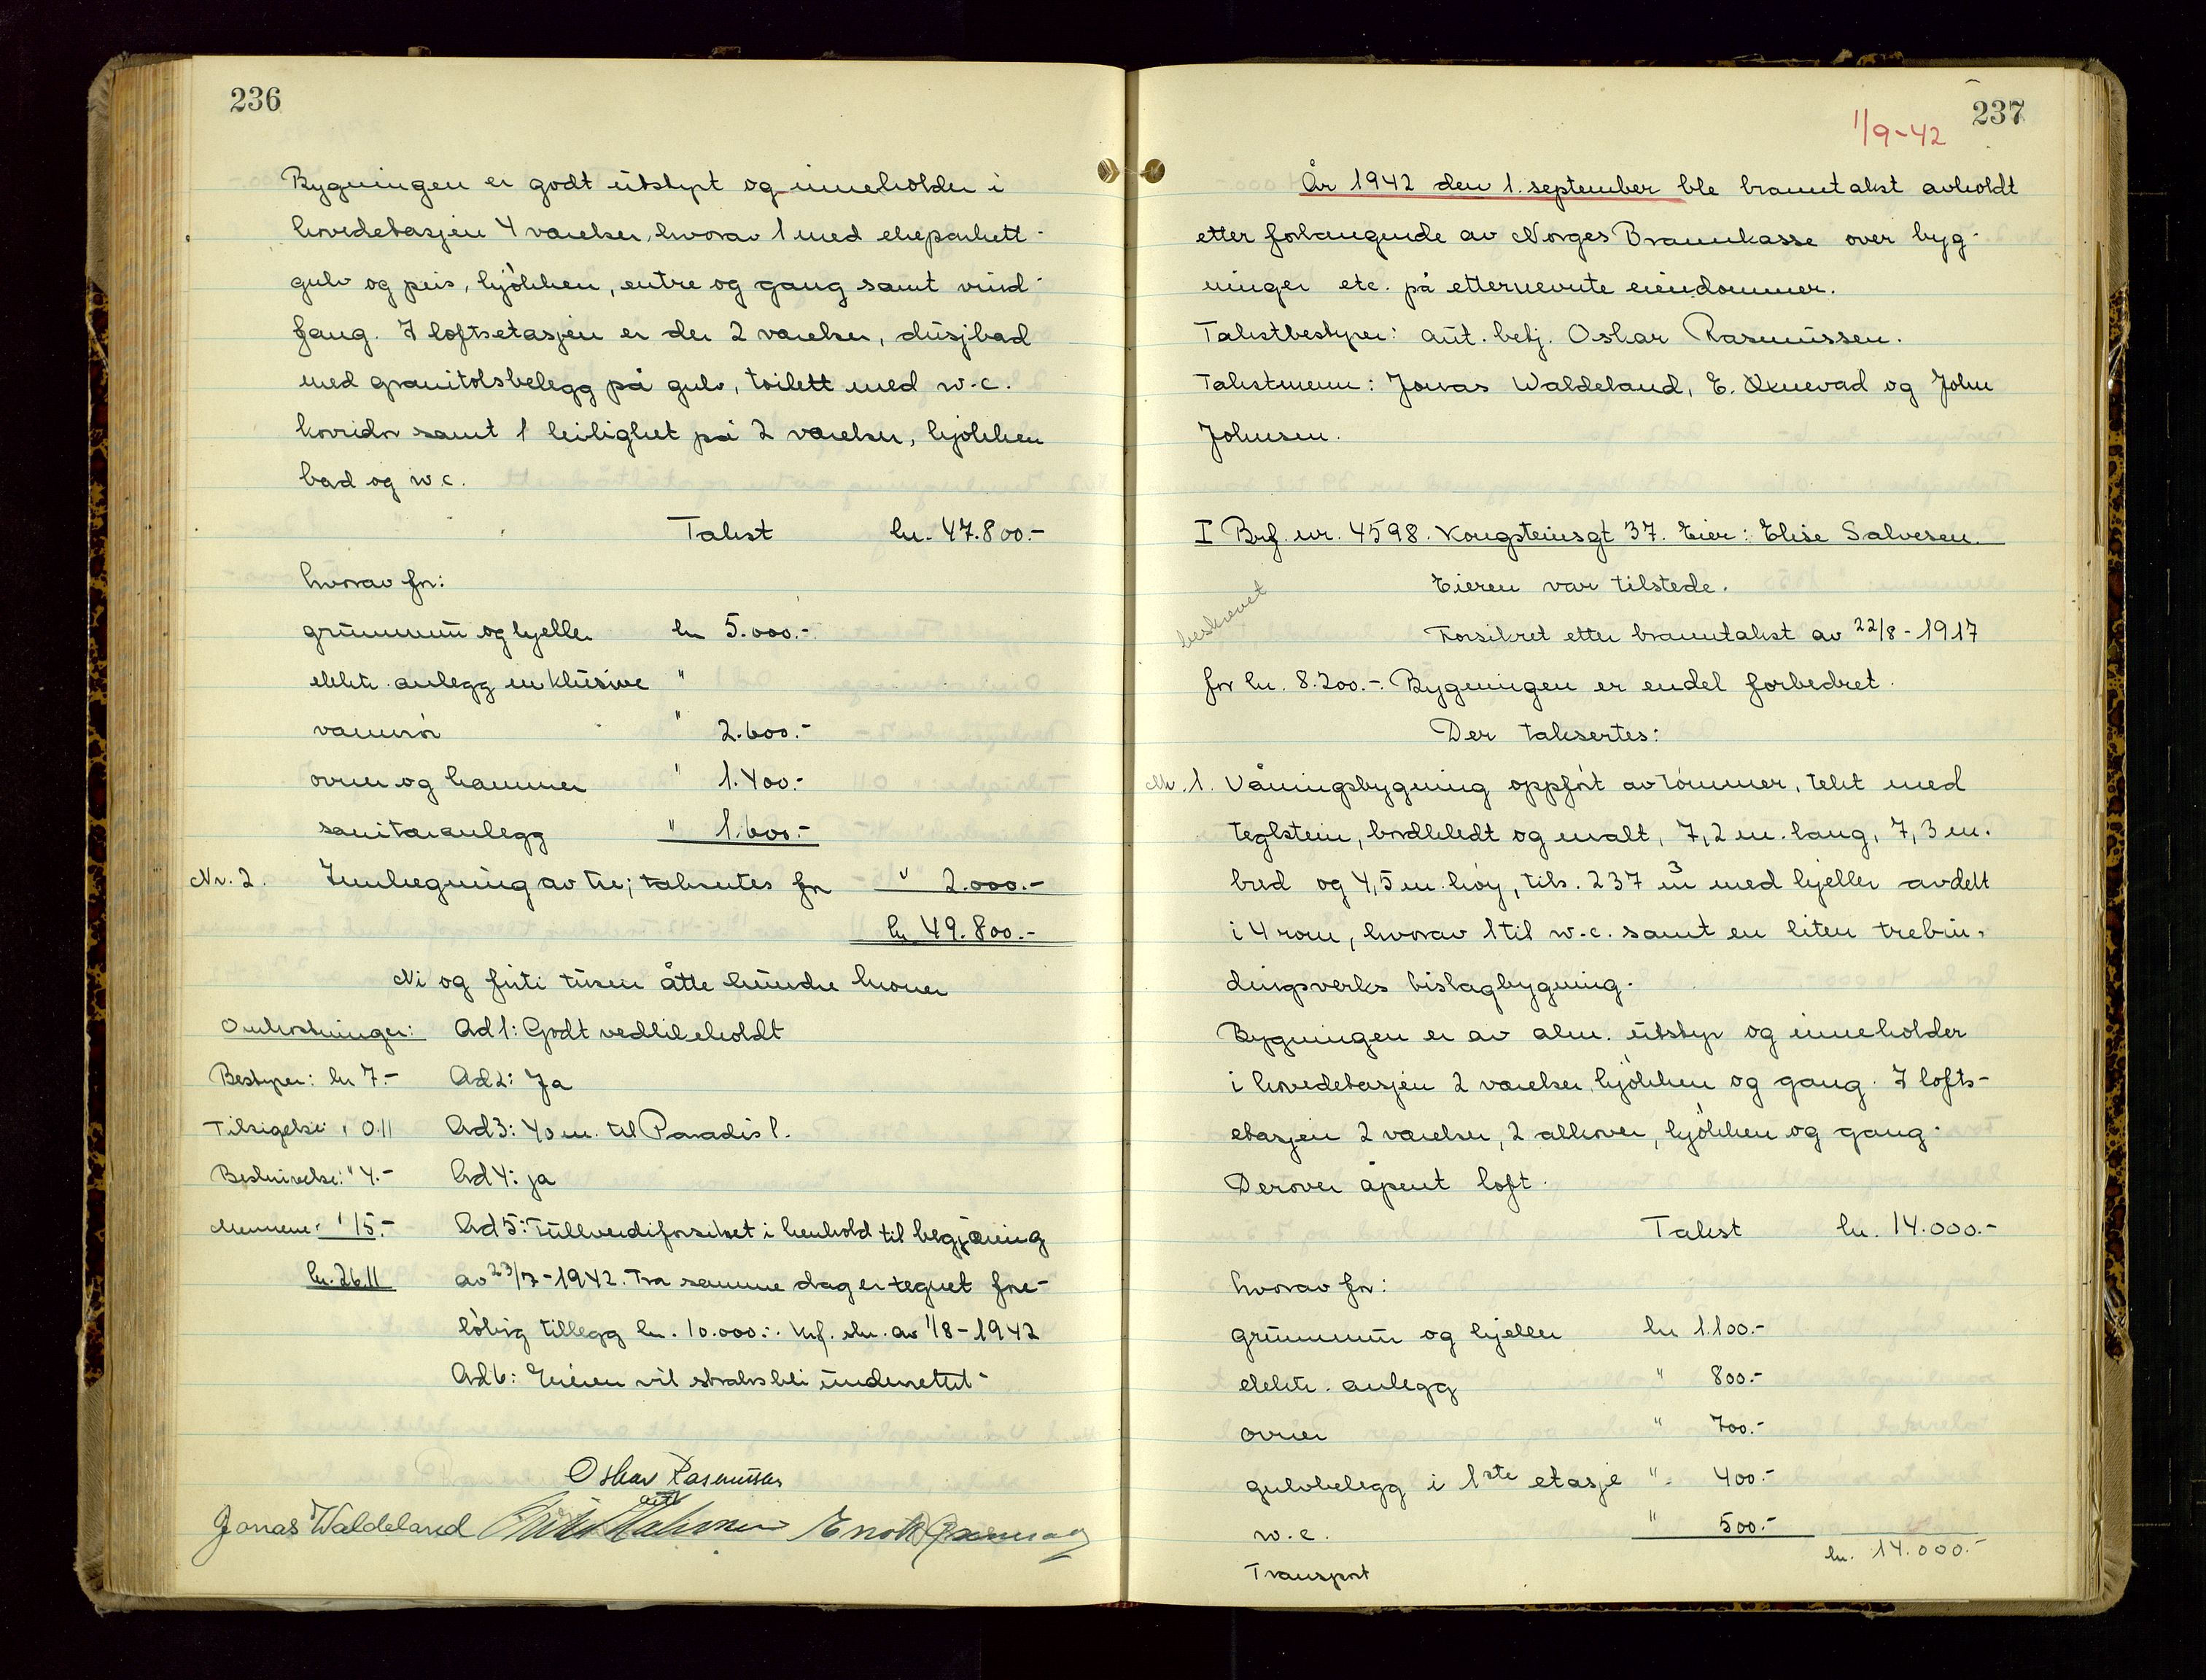 236
Bygningen er godt utstyrt og inneholder i
hovedetasjen 4 værelser, hvorav 1 med ekeparkett-
gulv og peis, kjøkken, entre og gang samt vind-
fang. I loftsetasjen er der 2 værelser, dusjbad
med granitolsbelegg på gulv, toilett med w.c.
korridor samt 1 leilighet på 2 værelser, kjøkken
bad og w.c.
Takst kr. 47.800.-
hvorav for:
grunnmur og kjeller kr 5.000.-
elektr. anlegg inklusive "
varmrør " 2.600.-
ovner og kaminer " 1.400.-
sanitæranlegg " 1.600.-
Nr. 2. Innhegning av tre; takseres for " 2.000.-
kr 49.800.-
Ni og førti tusen åtte hundre kroner
Omkostninger: Ad 1: Godt vedlikeholdt
Bestyrer: kr 7.- Ad 2: Ja
Tilsigelse: " 0.11 Ad 3: 40 m. til Paradis l.
Beskrivelse: " 4.- Ad 4: ja
Mennene: " 15.- Ad 5: Fullverdiforsikret i henhold til begjæring
kr. 26.11 av 23/7-1942. Fra samme dag er tegnet fore-
løbig tillegg kr. 10.000.-. Krf. skr. av 1/8-1942
Ad 6: Eieren vil straks bli underrettet-
Oskar Rasmussen
aut
Jonas Waldeland
237
1/9-42
År 1942 den 1. september ble branntakst avholdt
etter forlangende av Norges Brannkasse over byg-
ninger etc. på etternevnte eiendommer.
Takstbestyrer: aut. betj. Oskar Rasmussen.
Takstmenn: Jonas Waldeland, E. Øxnevad og John
Johnsen.
I Brf. nr. 4598. Kongsteinsgt 37. Eier: Elise Salvesen.
Eieren var tilstede.
beskrevet
Forsikret etter branntakst av 22/8-1917
for kr. 8.200.-. Bygningen er endel forbedret.
Der taksertes:
Nr. 1. Våningsbygning oppført av tømmer, tekt med
teglstein, bordkledt og malt, 7,2 m. lang, 7,3 m.
bred og 4,5 m. høy, tils. 237 m3 med kjeller avdelt
i 4 rom, hvorav 1 til w.c. samt en liten trebin-
dingsverks bislagbygning.
Bygningen er av alm. utstyr og inneholder
i hovedetasjen 2 værelser, kjøkken og gang. I lofts-
etasjen 2 værelser, 2 alkover, kjøkken og gang.
Derover åpent loft.
Takst kr. 14.000.-
hvorav for:
grunnmur og kjeller kr 1.100.-
elektr. anlegg " 800.-
ovner " 700.-
gulvbelegg i 1ste etasje " 400.-
w.c. " 500.-
Transport kr. 14.000.-